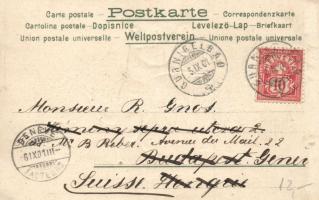 Carte postale Postkarte Correspondenzkarte
Cartolina postale Dopisnice Levelező-Lap Briefkaart
Union postale universelle Weltpostverein Unione postale universale
GURNIGELBAD
5.IX.01
10
Monsieur R. Gnos.
GENÈVE
6IX01
Mr B Reber. Avenue du Mail. 22
Budapest Genève
Suisse Hongrie
12.-